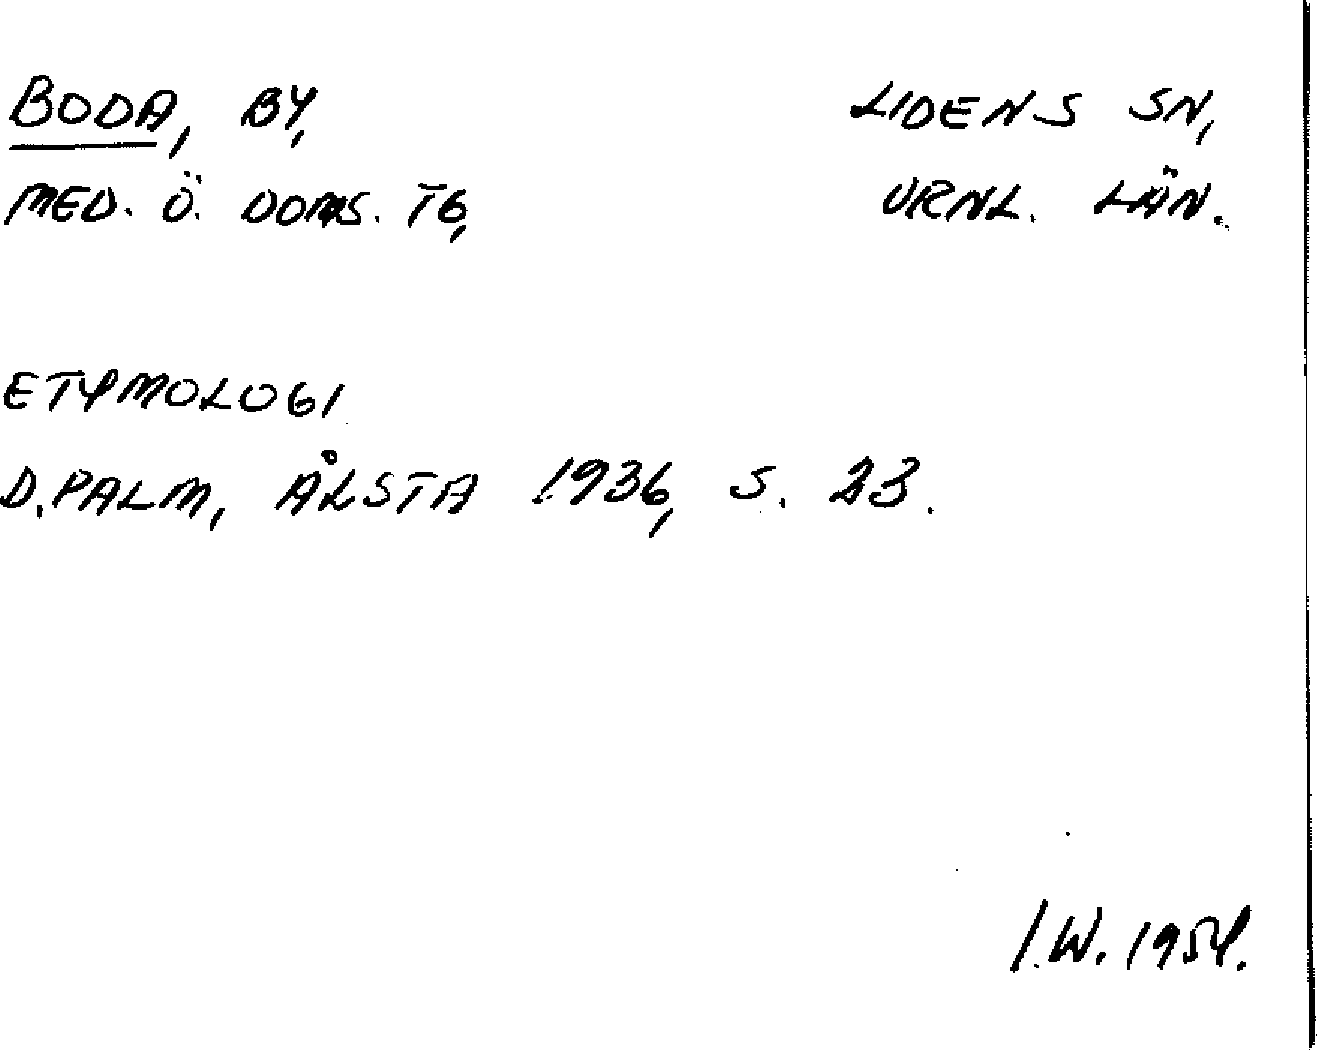 BODA, BY, LIDENS SN,
MED. Ö. DOMS. TG, VRNL. LÄN.
ETYMOLOGI
D. PALM, ÅLSTA 1936, S. 23.
I.W. 1954.